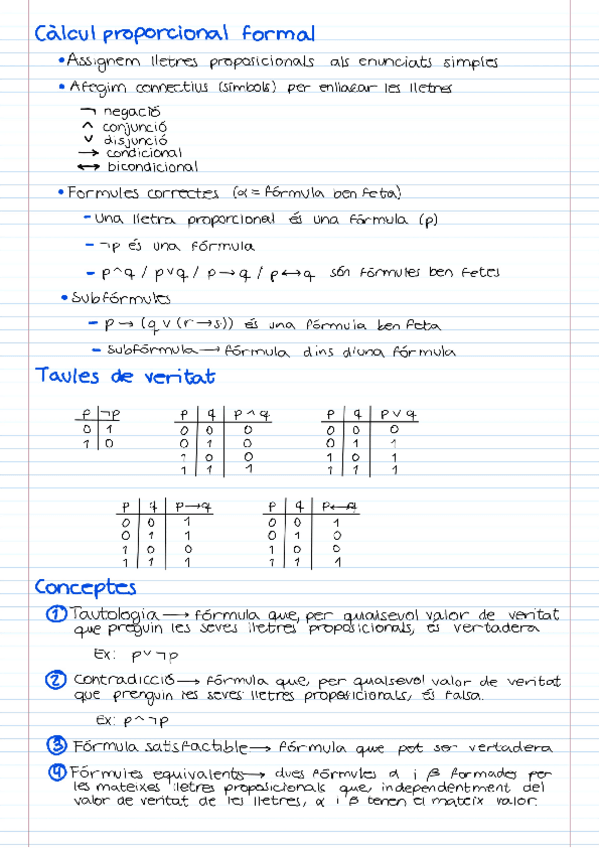 Càlcul proporcional formal
• Assignem lletres proposicionals als enunciats simples
• Afegim connectius (símbols) per enllaçar les lletres
¬ negació
^ conjunció
v disjunció
→ condicional
↔ bicondicional
• Formules correctes (α = fórmula ben feta)
- Una lletra proporcional és una fórmula (p)
- ¬p és una fórmula
- p^q / pvq / p→q / p↔q són fórmules ben fetes
• Subfórmules
- p → (q v (r→s)) és una fórmula ben feta
- Subfórmula → fórmula dins d'una fórmula
Taules de veritat
p ¬p
0 1
1 0
p q p^q
0 0 0
0 1 0
1 0 0
1 1 1
p q pvq
0 0 0
0 1 1
1 0 1
1 1 1
p q p→q
0 0 1
0 1 1
1 0 0
1 1 1
p q p↔q
0 0 1
0 1 0
1 0 0
1 1 1
Conceptes
1 Tautologia → fórmula que, per qualsevol valor de veritat
que prenguin les seves lletres proposicionals, és vertadera
Ex: p v ¬p
2 Contradicció → fórmula que, per qualsevol valor de veritat
que prenguin les seves lletres proposicionals, és falsa.
Ex: p ^ ¬p
3 Fórmula satisfactable → fórmula que pot ser vertadera
4 Fórmules equivalents → dues fórmules α i β formades per
les mateixes lletres proposicionals que, independentment del
valor de veritat de les lletres, α i β tenen el mateix valor.